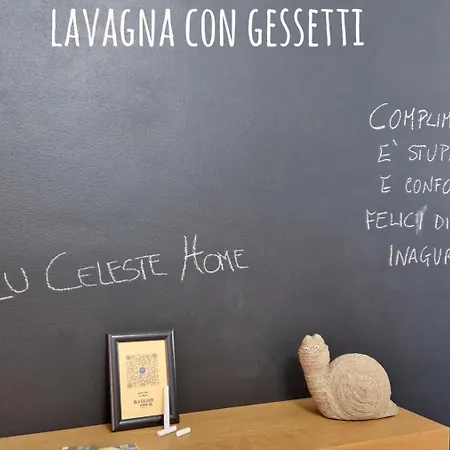 LAVAGNA CON GESSETTI
COMPLIM
E' STUP
E CONFO
FELICI DI
INAGUR
LU CELESTE HOME